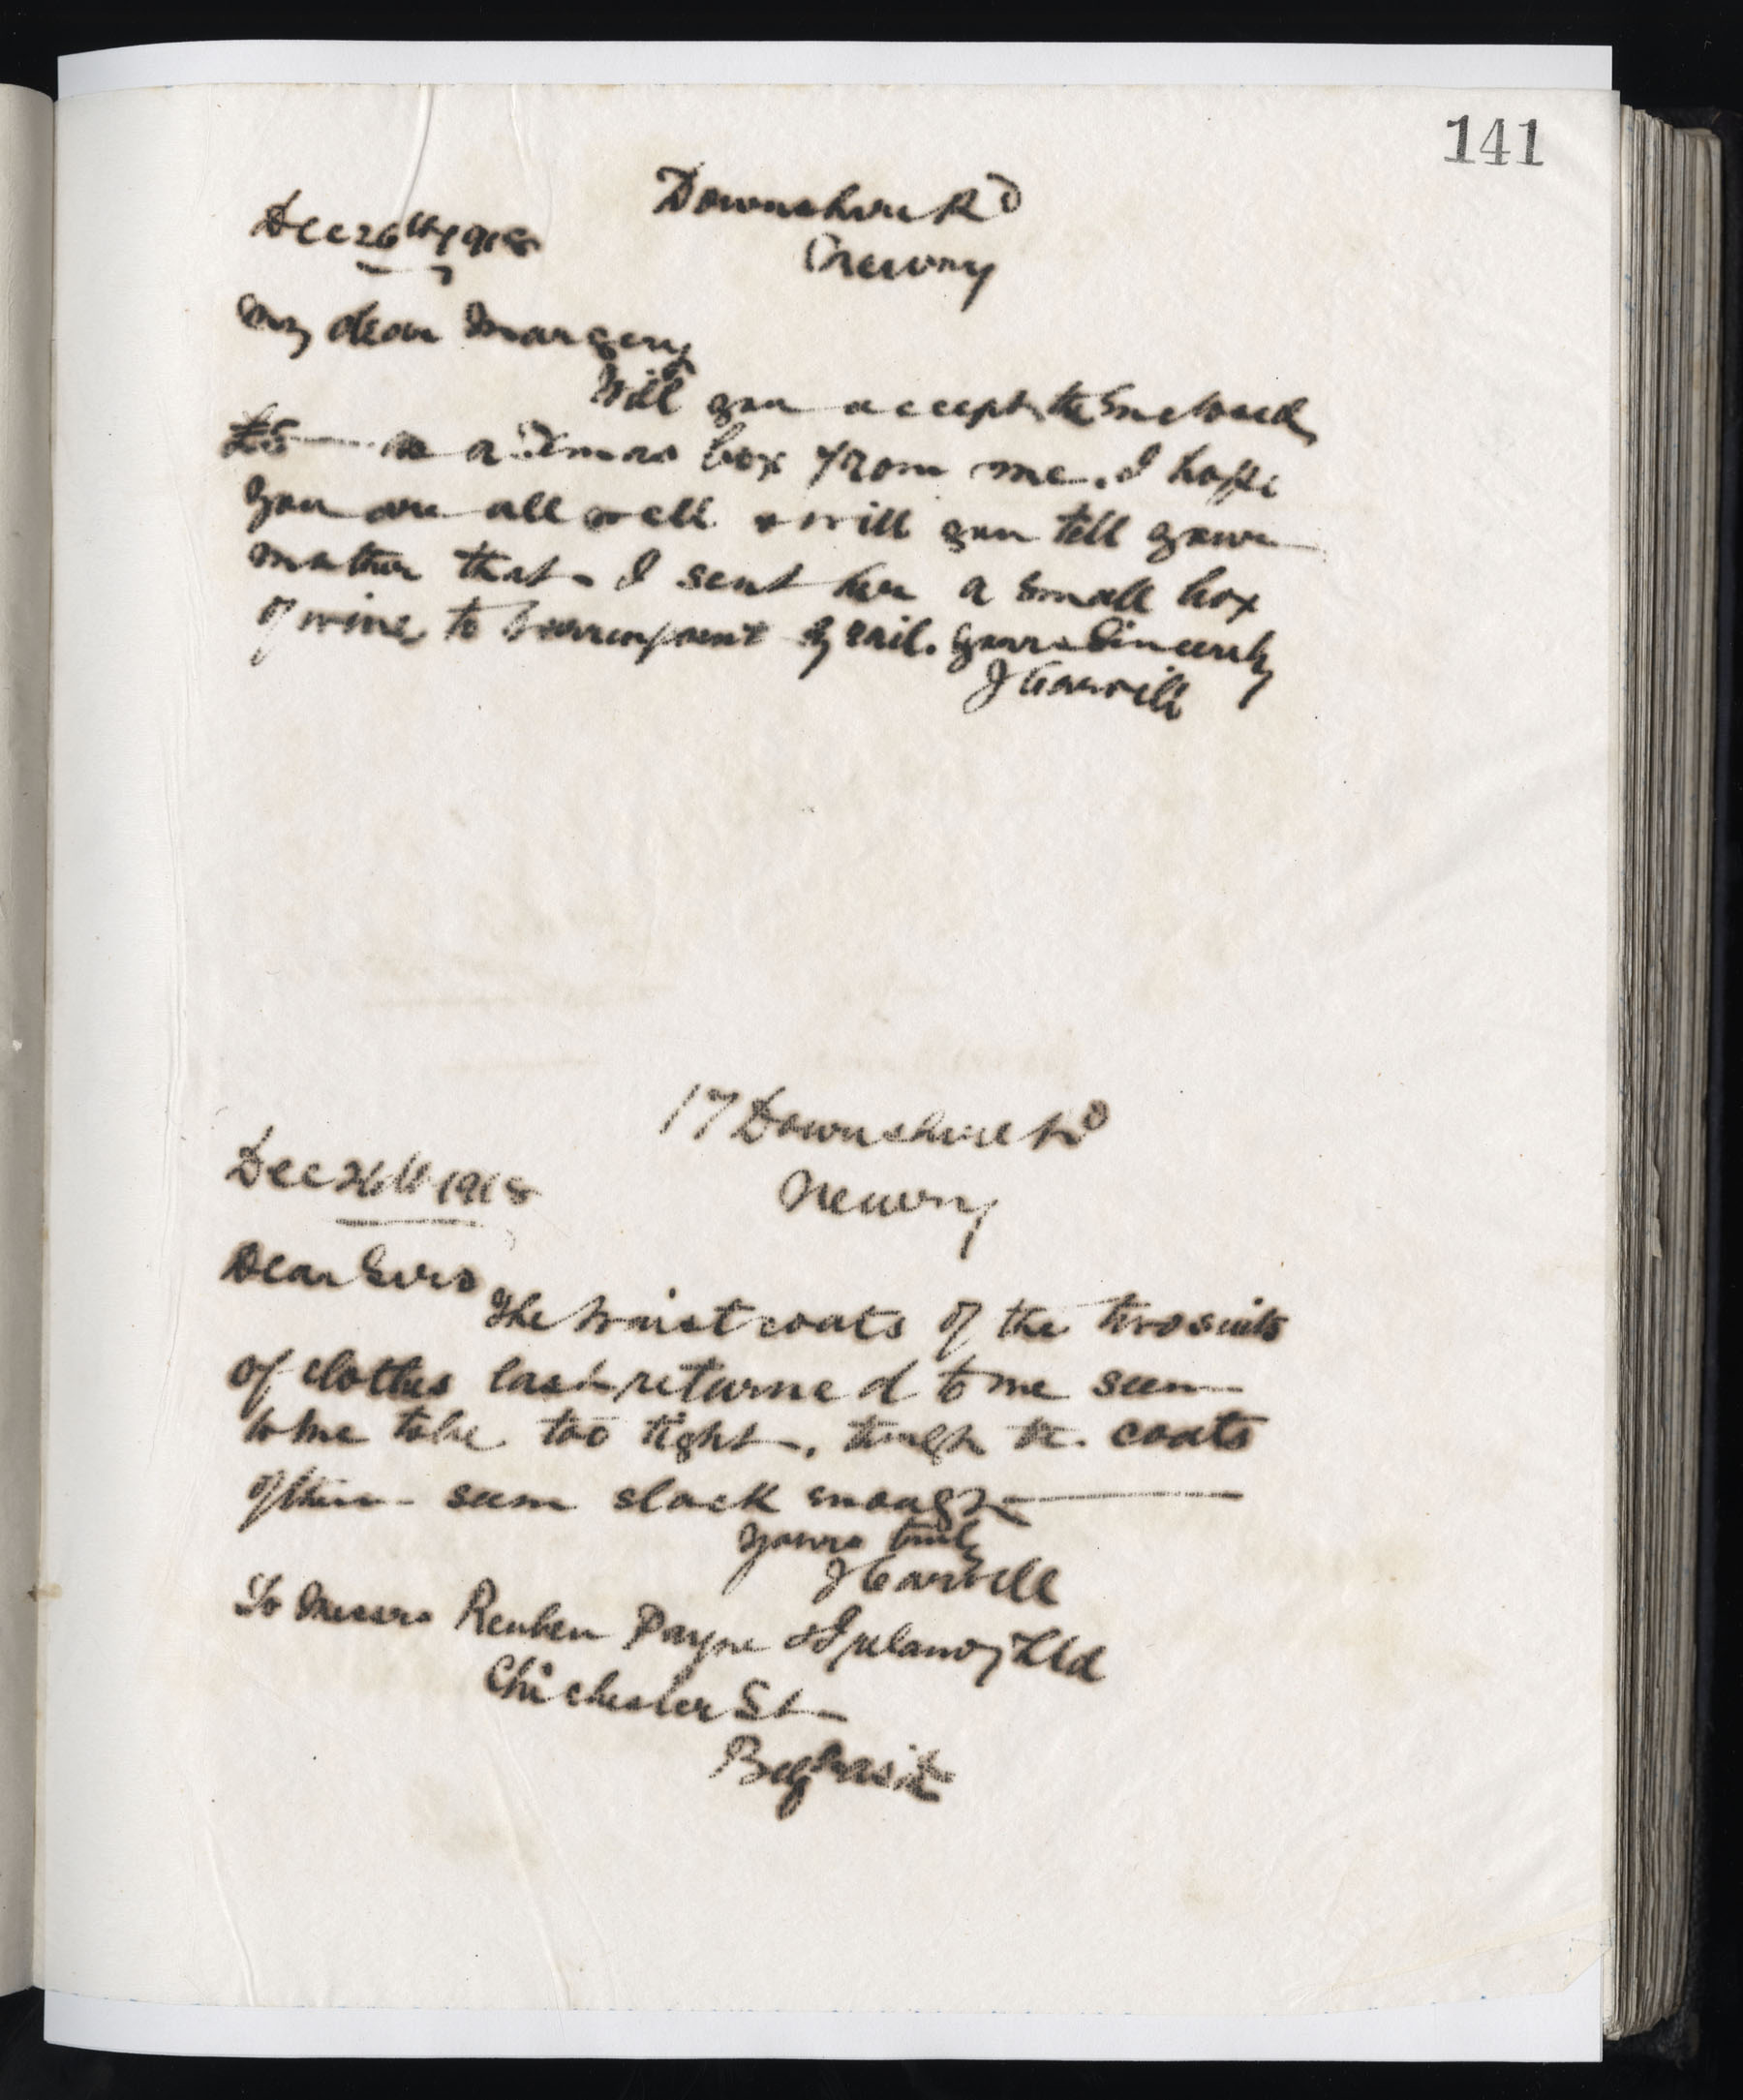 141
Downshire Rd
Newry
Dec 26th 1918
My dear Margery
Will you accept the Enclosed
£5 — as a Xmas box from me. I hope
you are all well & will you tell your
mother that I sent her a small box
of wine to Warrenpoint by rail. Yours Sincerely
J Carvill
17 Downshire Rd
Newry
Dec 26th 1918
Dear Sirs
The Waistcoats of the two suits
of clothes last returned to me seem
to me to be too tight, though the coats
of them seem slack enough —
Yours truly
J Carvill
To Messrs Reuben Payne & Ireland Ltd
Chichester St
Belfast